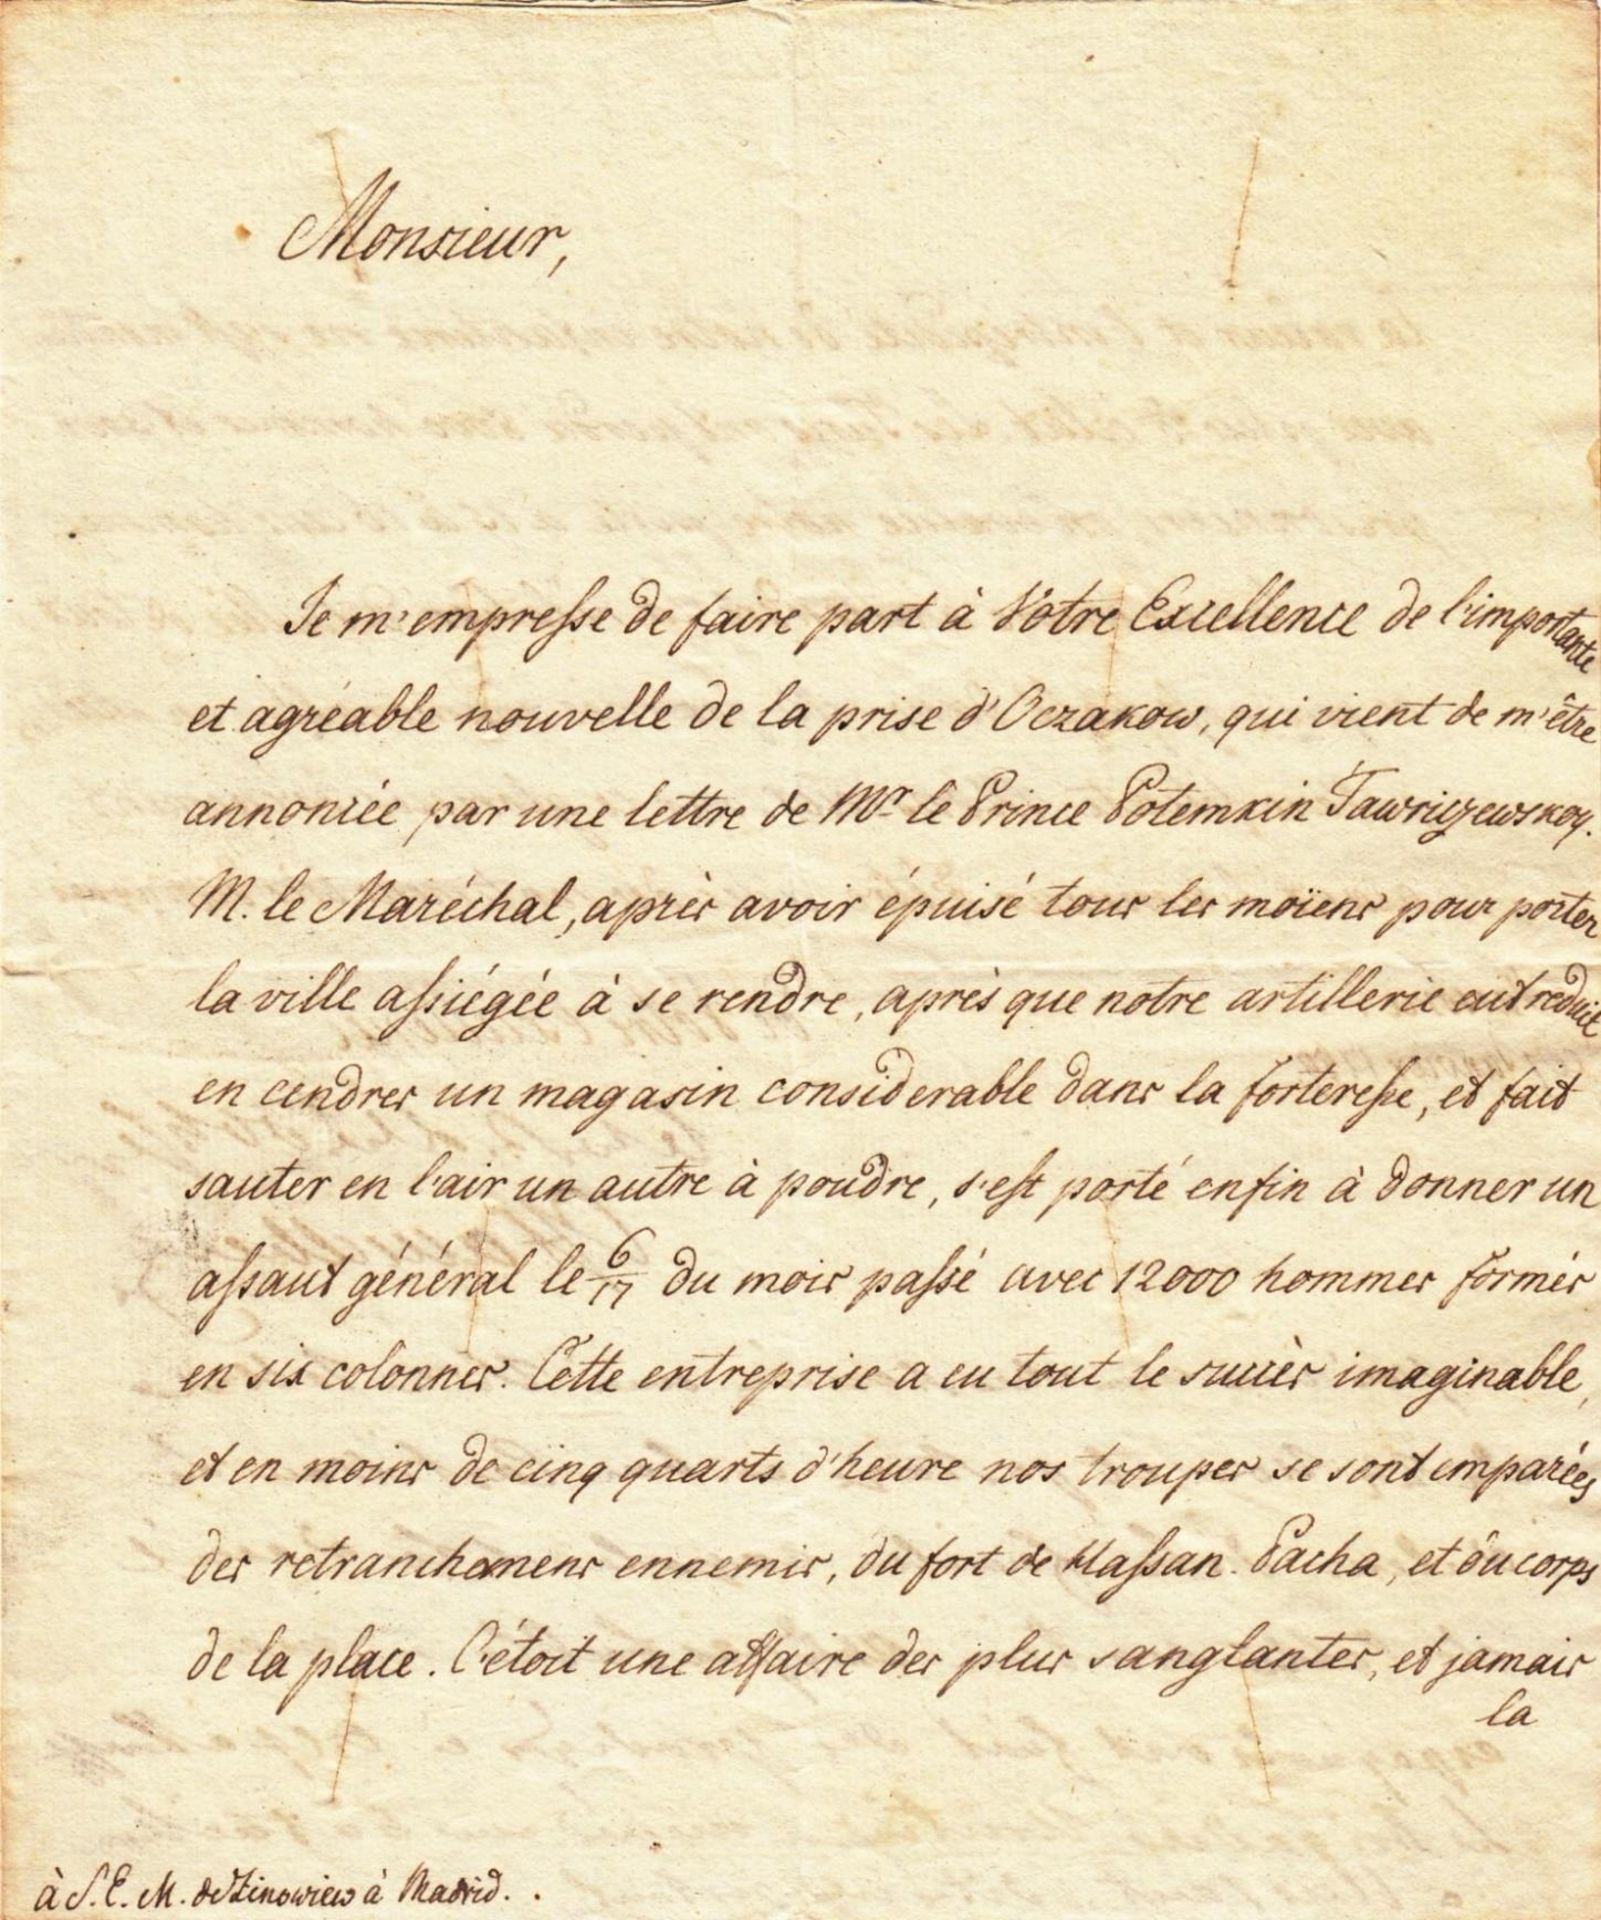 Monsieur,
Je m'empresse de faire part à Votre Excellence de l'importante
et agréable nouvelle de la prise d'Oczakow, qui vient de m'être
annoncée par une lettre de Mr le Prince Potemkin Tawriczewskoy.
M. le Maréchal, après avoir épuisé tous les moïens pour porter
la ville assiégée à se rendre, après que notre artillerie eut reduit
en cendres un magasin considerable dans la forteresse, et fait
sauter en l'air un autre à poudre, s'est porté enfin à donner un
assaut général le 6/17 du mois passé avec 12000 hommes formés
en six colonnes. Cette entreprise a eu tout le succès imaginable,
et en moins de cinq quarts d'heure nos troupes se sont emparées
des retranchemens ennemis, du fort de Hassan-Pacha, et du corps
de la place. C'étoit une affaire des plus sanglantes, et jamais
la
à S. E. M. de Zinowiew à Madrid.